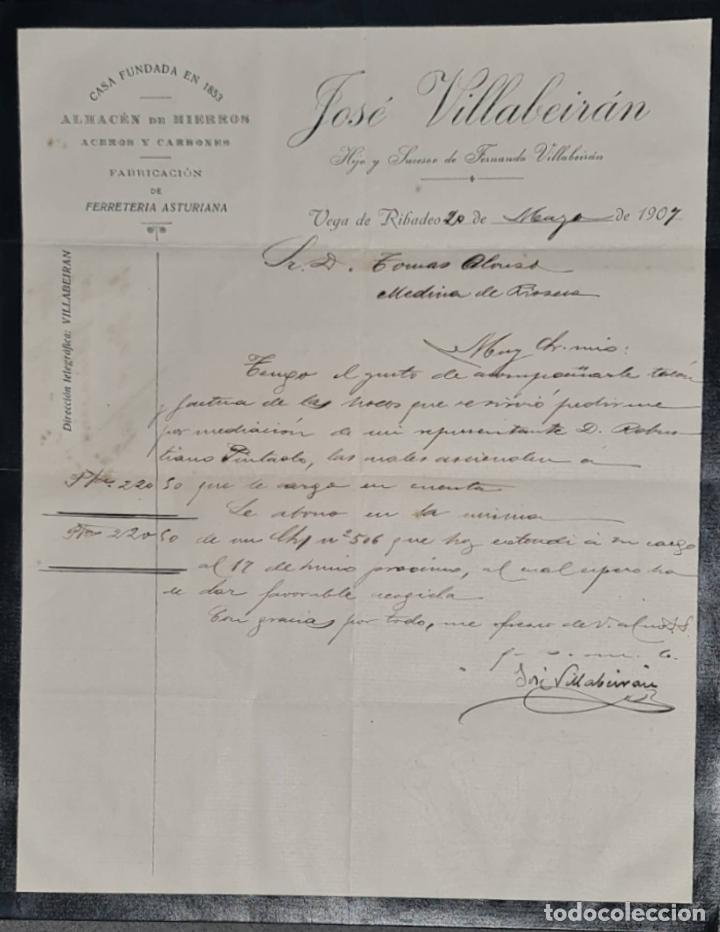 CASA FUNDADA EN 1853
ALMACÉN DE HIERROS
ACEROS Y CARBONES
FABRICACIÓN
DE
FERRETERIA ASTURIANA
Dirección telegráfica: VILLABEIRAN
José Villabeirán
Hijo y Sucesor de Fernando Villabeirán
Vega de Ribadeo 20 de Mayo de 1907
Sr. D. Tomas Alonso
Medina de Rioseco
Muy Sr. mio:
Tengo el gusto de acompañarle talón
y factura de las hoces que se sirvió pedirme
por mediación de mi representante D. Robus
tiano Pintado, las cuales ascienden a
Ptas 220 50 que le cargo en cuenta
Le abono en la misma
Ptas 220 50 de mi nº 506 que hoy extendí á su cargo
al 17 de Junio proximo, al cual espero ha
de dar favorable acogida
Con gracias por todo, me ofrezco de V. S.S.
q. b. s. m.
José Villabeirán
todocoleccion.net